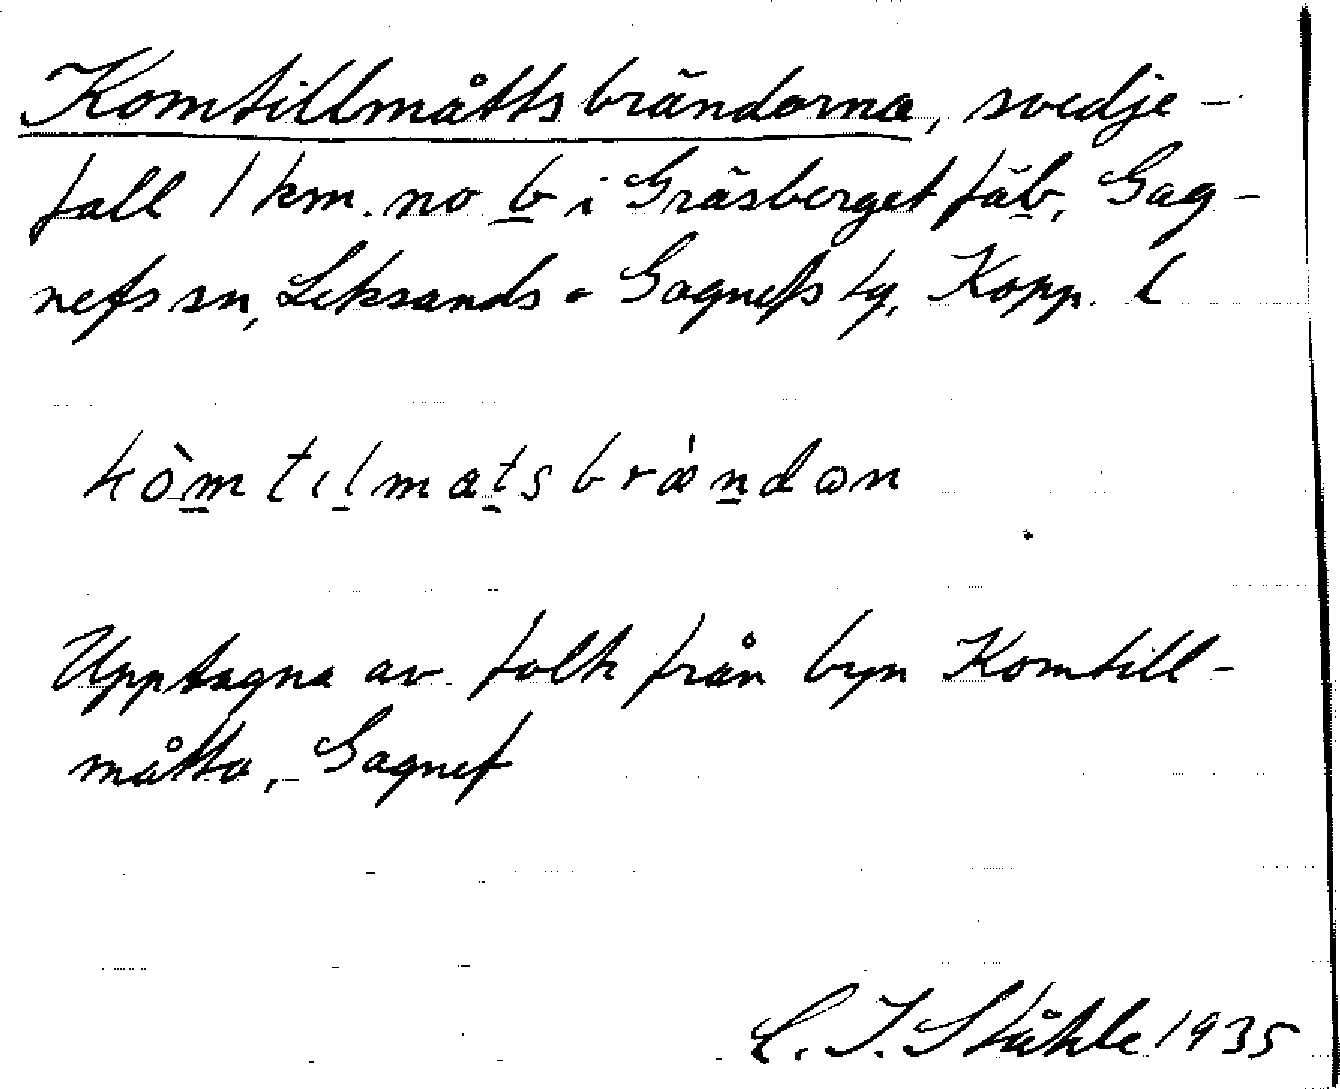 Komtillmåttsbrändorna, svedje-
fall 1 km. no b i Gräsberget fäb, Gag-
nefs sn, Leksands o Gagnefs tg, Kopp. l
kòmtilmatsbrǽndɷn
Upptagna av folk från byn Komtill-
måtta, Gagnef
C. I. Ståhle 1935